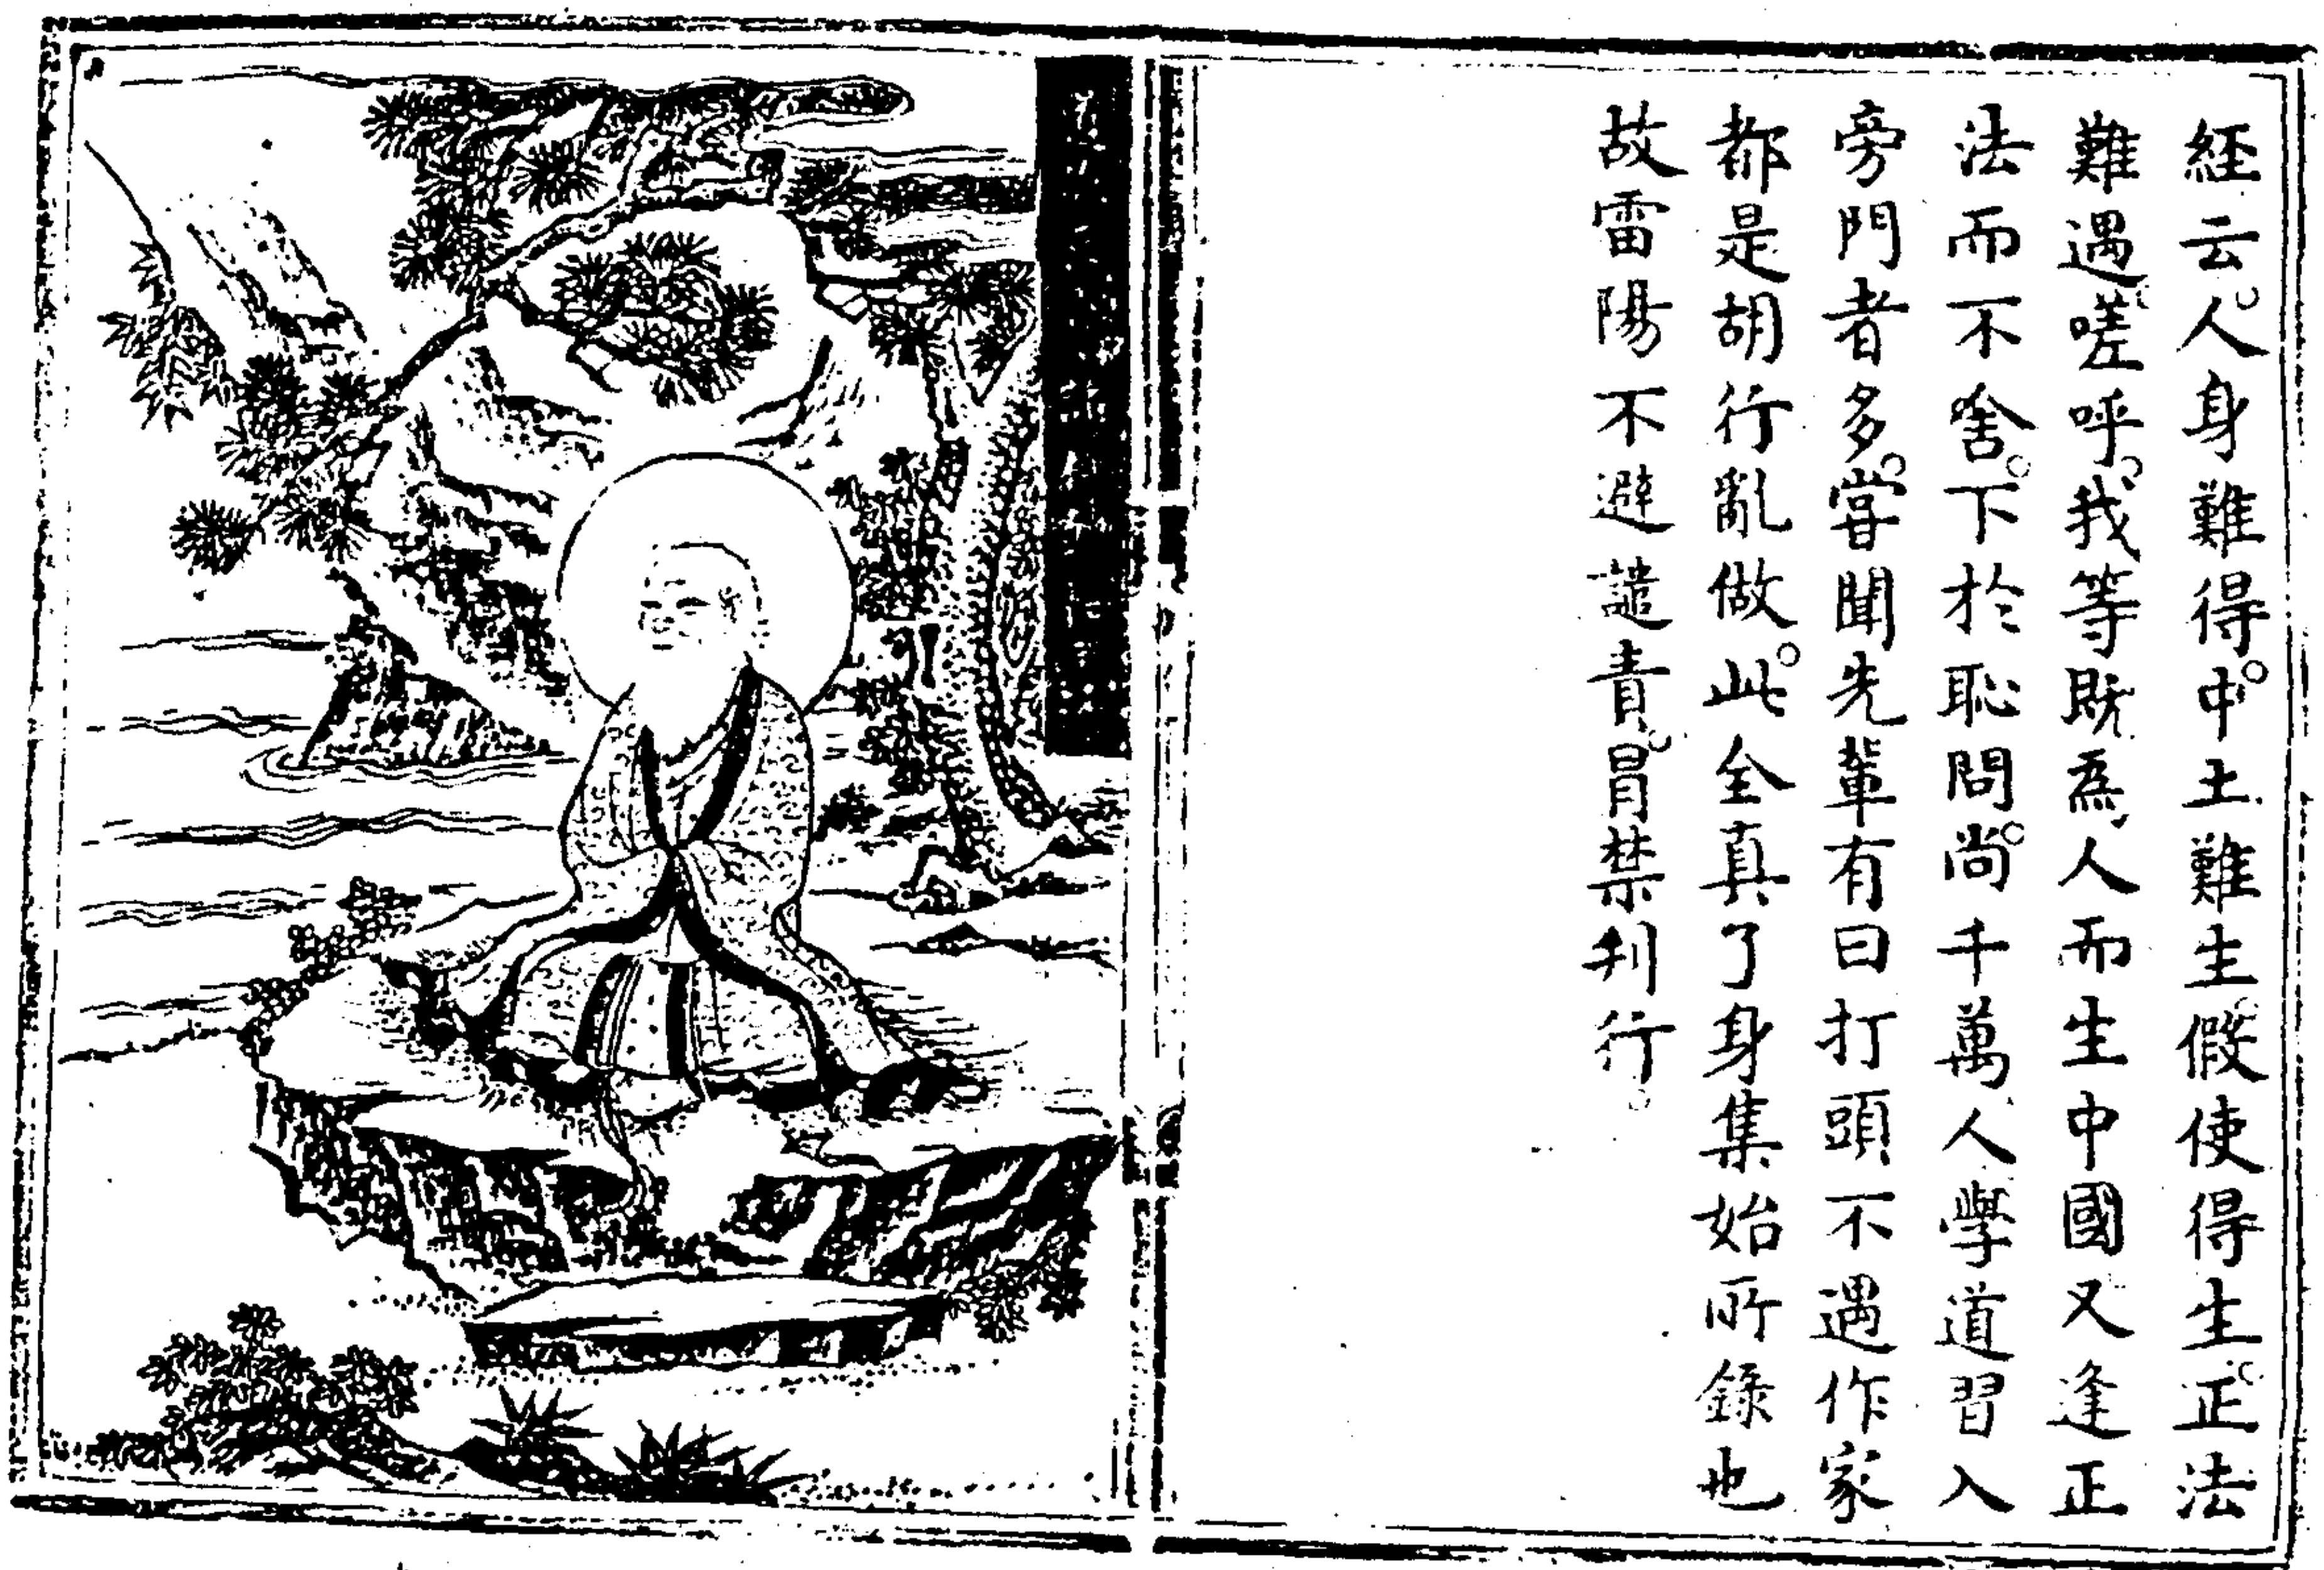 経云。人身難得。中土難生。假使得生。正法
難遇。嗟呼。我等既爲人而生中國又逢正
法而不舍。下於恥問。尚千萬人學道習入
旁門者多。甞聞先輩有曰打頭不遇作家
都是胡行亂做。此全真了身集始所錄也
故雷陽不避譴責。冒禁刊行。